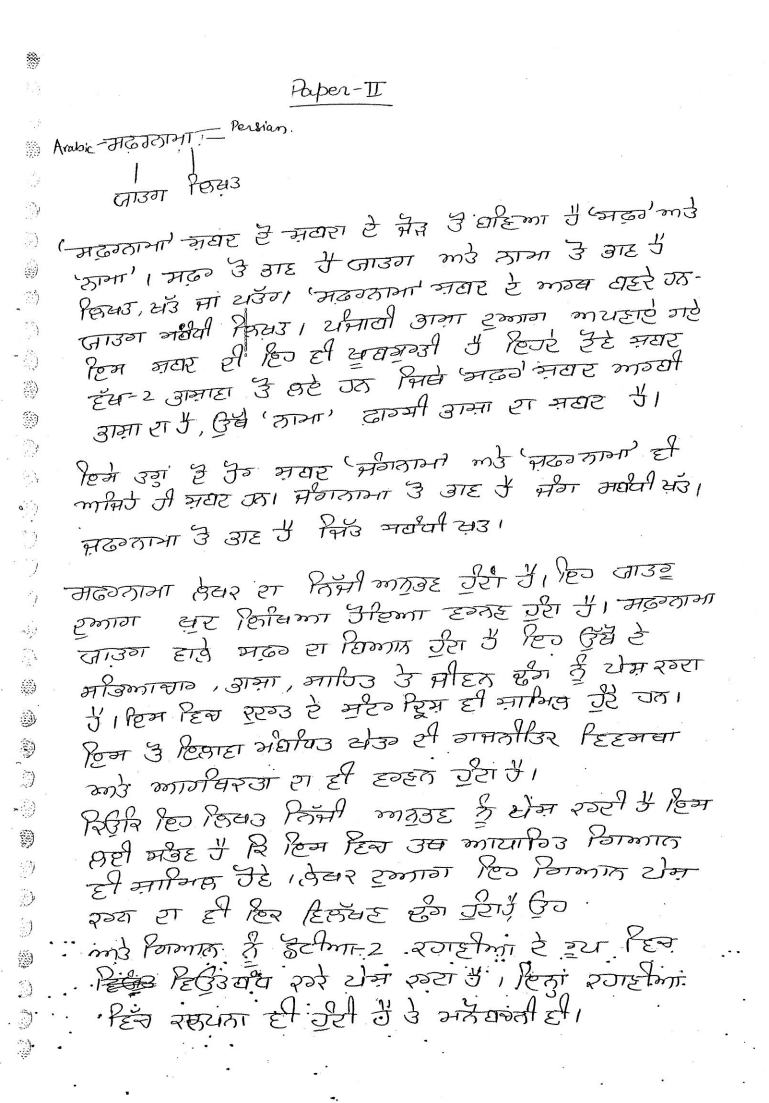 Paper-II
Arabic-ਸਫ਼ਰਨਾਮਾ:- Persian.
ਯਾਤਰਾ ਲਿਖ਼ਤ
'ਸਫ਼ਰਨਾਮਾ' ਸ਼ਬਦ ਦੋ ਸ਼ਬਦਾਂ ਦੇ ਜੋੜ ਤੋਂ ਬਣਿਆ ਹੈ 'ਸਫ਼ਰ' ਅਤੇ
'ਨਾਮਾ'। ਸਫ਼ਰ ਤੋਂ ਭਾਵ ਹੈ ਯਾਤਰਾ ਅਤੇ ਨਾਮਾ ਤੋਂ ਭਾਵ ਹੈ
ਲਿਖਤ, ਖ਼ੱਤ ਜਾਂ ਪੱਤਰ। 'ਸਫਰਨਾਮਾ' ਸ਼ਬਦ ਦੇ ਅਰਥ ਬਣਦੇ ਹਨ-
ਯਾਤਰਾ ਸਬੰਧੀ ਲਿਖ਼ਤ। ਪੰਜਾਬੀ ਭਾਸ਼ਾ ਦੁਆਰਾ ਅਪਣਾਏ ਗਏ
ਇਸ ਸ਼ਬਦ ਦੀ ਇਹ ਵੀ ਖ਼ੂਬਸੂਰਤੀ ਹੈ ਇਹਦੇ ਦੋਵੇਂ ਸ਼ਬਦ
ਵੱਖ-2 ਭਾਸ਼ਾਵਾਂ ਤੋਂ ਲਏ ਹਨ ਜਿਥੇ 'ਸਫ਼ਰ' ਸ਼ਬਦ ਅਰਬੀ
ਭਾਸ਼ਾ ਦਾ ਹੈ, ਉੱਥੇ 'ਨਾਮਾ' ਫ਼ਾਰਸੀ ਭਾਸ਼ਾ ਦਾ ਸ਼ਬਦ ਹੈ।
ਇਸੇ ਤਰ੍ਹਾਂ ਦੋ ਹੋਰ ਸ਼ਬਦ 'ਜੰਗਨਾਮਾ' ਅਤੇ 'ਜ਼ਫ਼ਰਨਾਮਾ' ਵੀ
ਅਜਿਹੇ ਹੀ ਸ਼ਬਦ ਹਨ। ਜੰਗਨਾਮਾ ਤੋਂ ਭਾਵ ਹੈ ਜੰਗ ਸਬੰਧੀ ਖ਼ੱਤ।
ਜ਼ਫ਼ਰਨਾਮਾ ਤੋਂ ਭਾਵ ਹੈ ਜਿੱਤ ਸਬੰਧੀ ਖ਼ਤ।
ਸਫਰਨਾਮਾ ਲੇਖਕ ਦਾ ਨਿੱਜੀ ਅਨੁਭਵ ਹੁੰਦਾ ਹੈ। ਇਹ ਯਾਤਰੂ
ਦੁਆਰਾ ਖ਼ੁਦ ਲਿਖਿਆ ਹੋਇਆ ਵਰਨਣ ਹੁੰਦਾ ਹੈ। ਸਫਰਨਾਮਾ
ਯਾਤਰਾ ਵਾਲੇ ਸਫ਼ਰ ਦਾ ਬਿਆਨ ਹੁੰਦਾ ਹੈ ਇਹ ਉੱਥੋਂ ਦੇ
ਸਭਿਆਚਾਰ, ਭਾਸ਼ਾ, ਸਾਹਿਤ ਤੇ ਜੀਵਨ ਢੰਗ ਨੂੰ ਪੇਸ਼ ਕਰਦਾ
ਹੈ। ਇਸ ਵਿਚ ਕੁਦਰਤ ਦੇ ਸੁੰਦਰ ਦ੍ਰਿਸ਼ ਵੀ ਸ਼ਾਮਿਲ ਹੁੰਦੇ ਹਨ।
ਇਸ ਤੋਂ ਇਲਾਵਾ ਸੰਬੰਧਿਤ ਖੇਤਰ ਦੀ ਰਾਜਨੀਤਿਕ ਵਿਵਸਥਾ
ਅਤੇ ਆਰਥਿਕਤਾ ਦਾ ਵੀ ਵਰਣਨ ਹੁੰਦਾ ਹੈ।
ਕਿਉਂਕਿ ਇਹ ਲਿਖਤ ਨਿੱਜੀ ਅਨੁਭਵ ਨੂੰ ਪੇਸ਼ ਕਰਦੀ ਹੈ ਇਸ
ਲਈ ਸੰਭਵ ਹੈ ਕਿ ਇਸ ਵਿਚ ਤਥ ਆਧਾਰਿਤ ਗਿਆਨ
ਵੀ ਸ਼ਾਮਿਲ ਹੋਵੇ। ਲੇਖਕ ਦੁਆਰਾ ਇਹ ਗਿਆਨ ਪੇਸ਼
ਕਰਨ ਦਾ ਵੀ ਇਕ ਵਿਲੱਖਣ ਢੰਗ ਹੁੰਦਾ ਹੈ, ਉਹ
ਅਤੇ ਗਿਆਨ ਨੂੰ ਛੋਟੀਆਂ-2 ਕਹਾਣੀਆਂ ਦੇ ਰੂਪ ਵਿਚ
ਵਿਉਂਤਬੱਧ ਕਰਕੇ ਪੇਸ਼ ਕਰਦਾ ਹੈ। ਇਨ੍ਹਾਂ ਕਹਾਣੀਆਂ
ਵਿੱਚ ਕਲਪਨਾ ਵੀ ਹੁੰਦੀ ਹੈ ਤੇ ਮਨੋਬਚਨੀ ਵੀ।